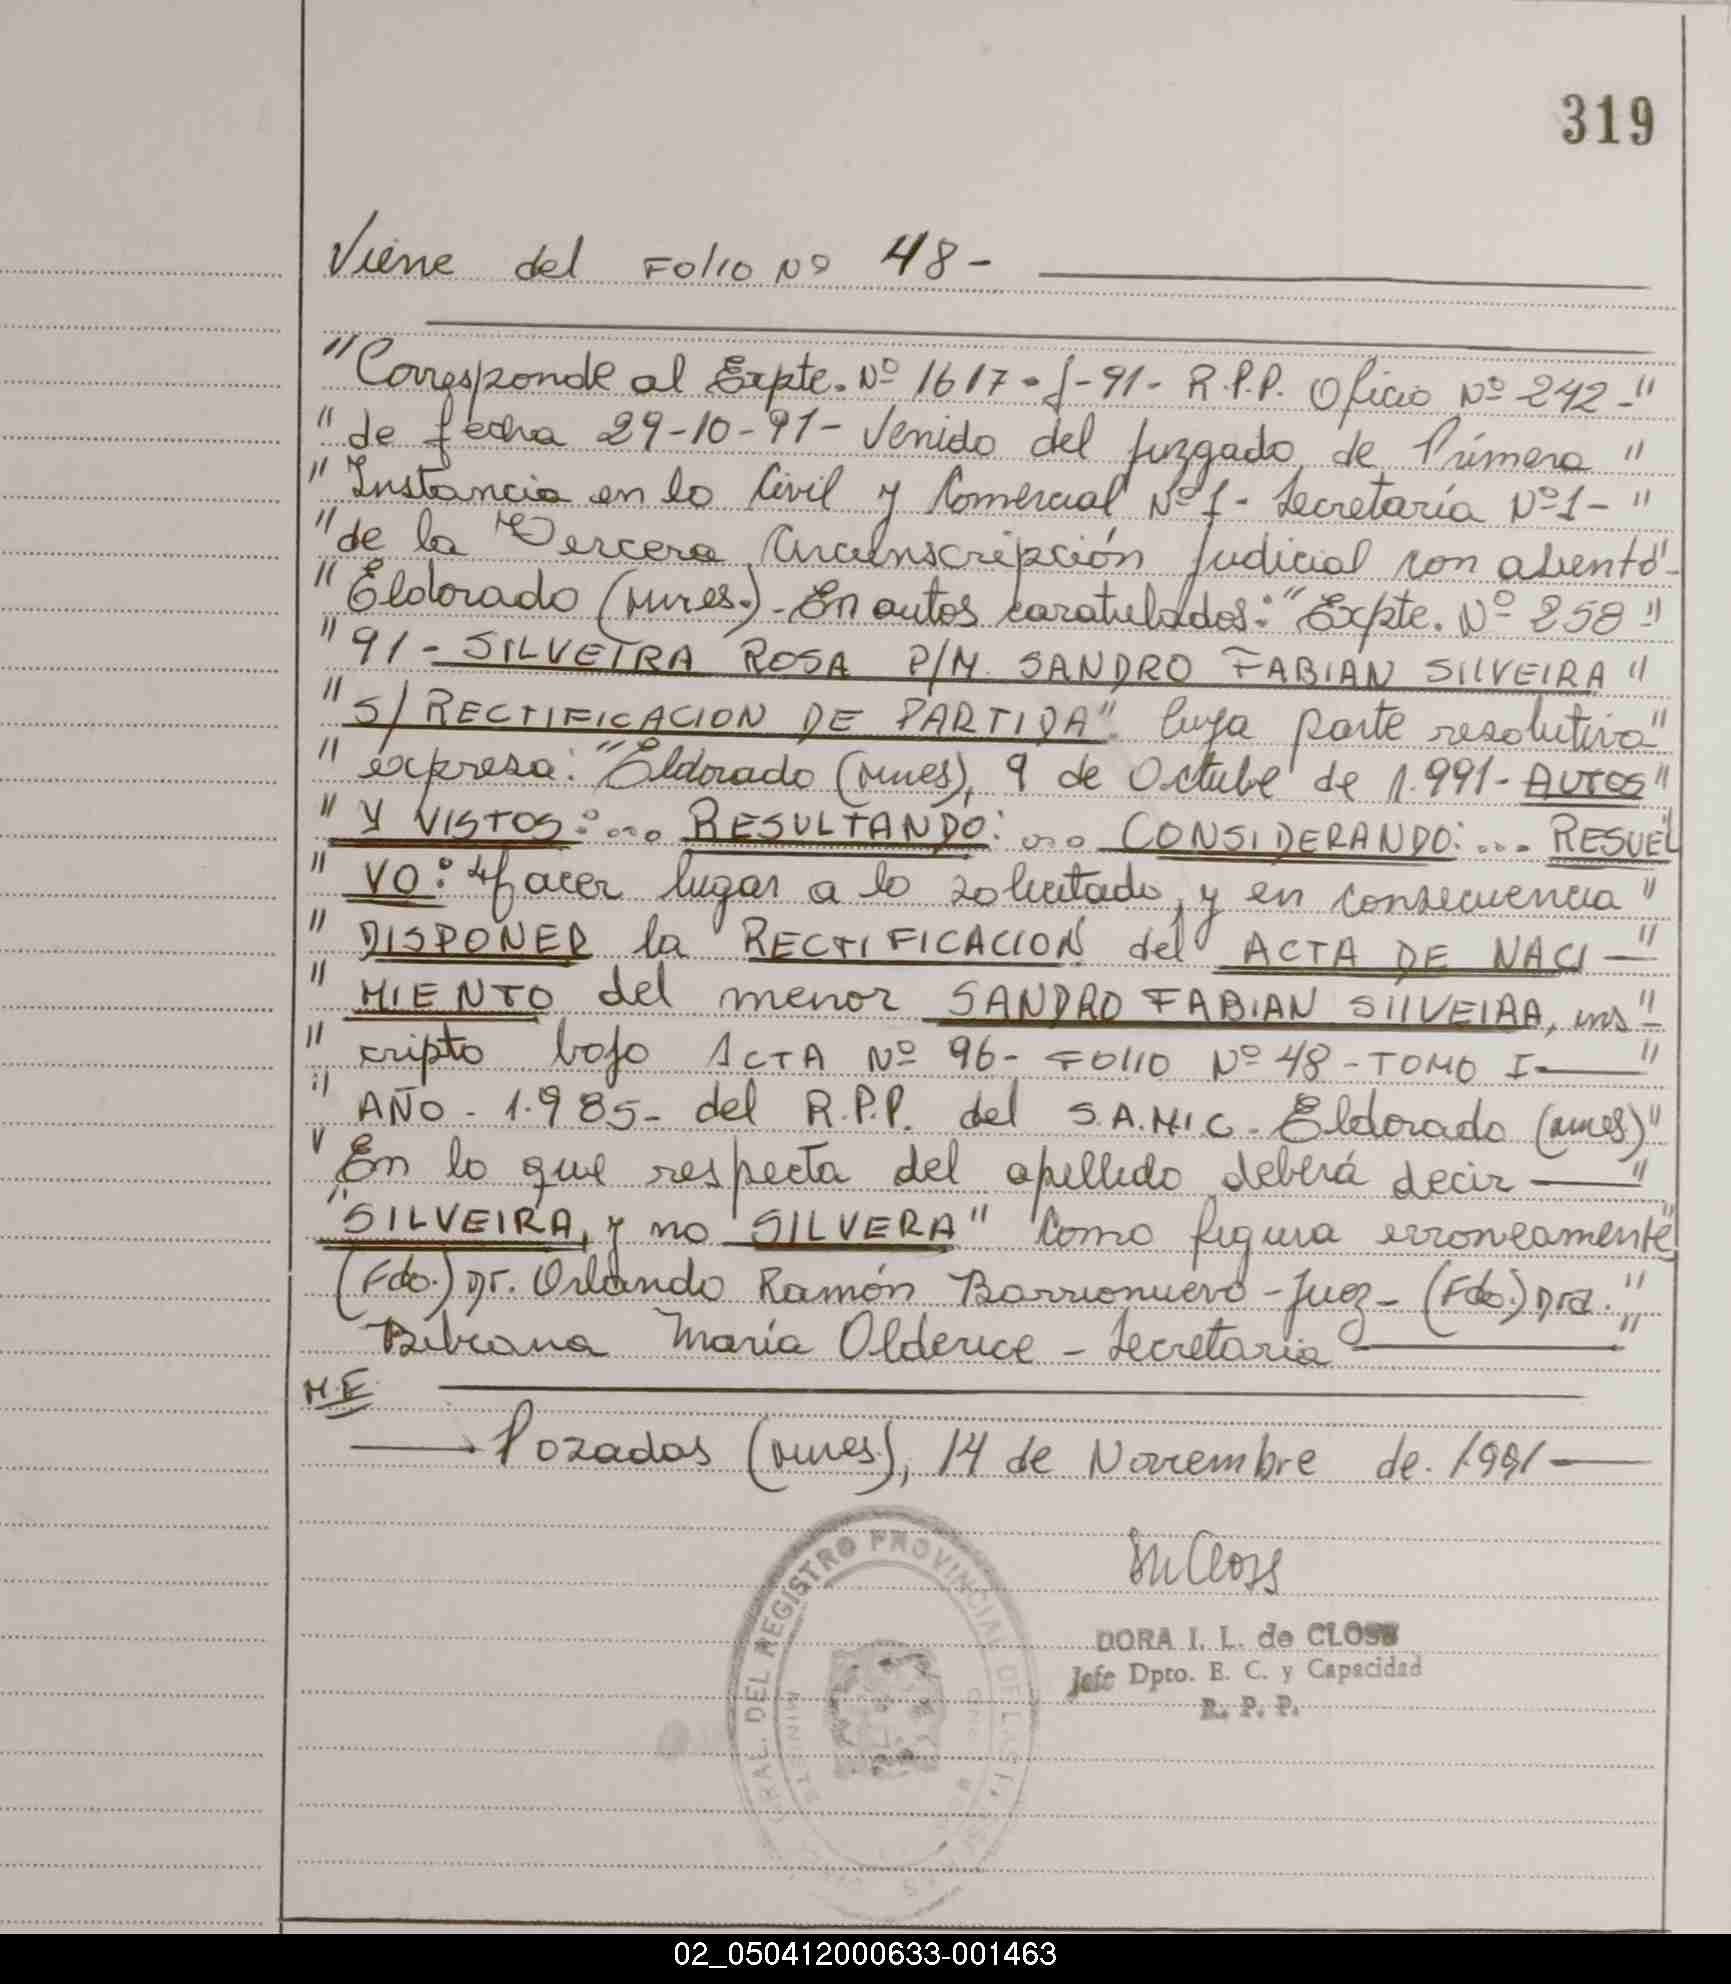 319
Viene del Folio Nº 48-
"Corresponde al Expte. Nº 1617-J-91- R.P.P. Oficio Nº 242-"
"de fecha 29-10-91- Venido del Juzgado de Primera "
"Instancia en lo Civil y Comercial Nº1- Secretaría Nº1- "
"de la Tercera Circunscripción Judicial con asiento"-
"Eldorado (Mnes.)- En autos caratulados: "Expte. Nº 258"
"91- SILVEIRA ROSA P/M. SANDRO FABIAN SILVEIRA "
"S/ RECTIFICACION DE PARTIDA". Cuya parte resolutiva"
"expresa: "Eldorado (Mnes), 9 de Octube de 1.991- AUTOS"
"Y VISTOS:... RESULTANDO:... CONSIDERANDO:... RESUEL
"VO: Hacer lugar a lo solicitado, y en consecuencia"
"DISPONER la RECTIFICACION del ACTA DE NACI-"
"MIENTO del menor SANDRO FABIAN SILVEIRA, ins"-
"cripto bajo ACTA Nº 96- FOLIO Nº 48-TOMO I- "
"AÑO- 1.985- del R.P.P. del S.A.M.I.C- Eldorado (Mnes)"
"En lo que respecta del apellido deberá decir - "
"SILVEIRA, y no "SILVERA" Como figura erroneamente"
(Fdo.) Dr. Orlando Ramón Barrionuevo-Juez- (Fdo.) Dra. "
Bibiana María Olderice - Secretaria "
M.E.
Posadas (Mnes.), 14 de Noviembre de 1.991-
DORA I. L. de CLOSS
Jefe Dpto. E. C. y Capacidad
R. P. P.
DEL REGISTRO PROVINCIAL DE LAS
02_050412000633-001463